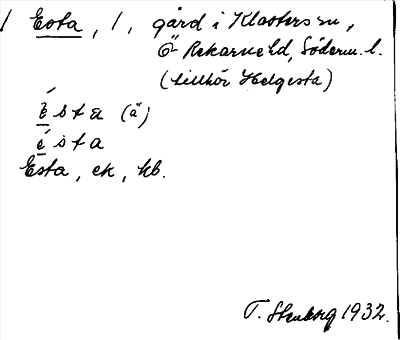 1 Esta, 1, gård i Klosters sn,
Ö Rekarne hd, Söderm. l.
(tillhör Helgesta)
è́sta (ä)
é̠sta
Esta, ek, kb.
T. Stenborg 1932.